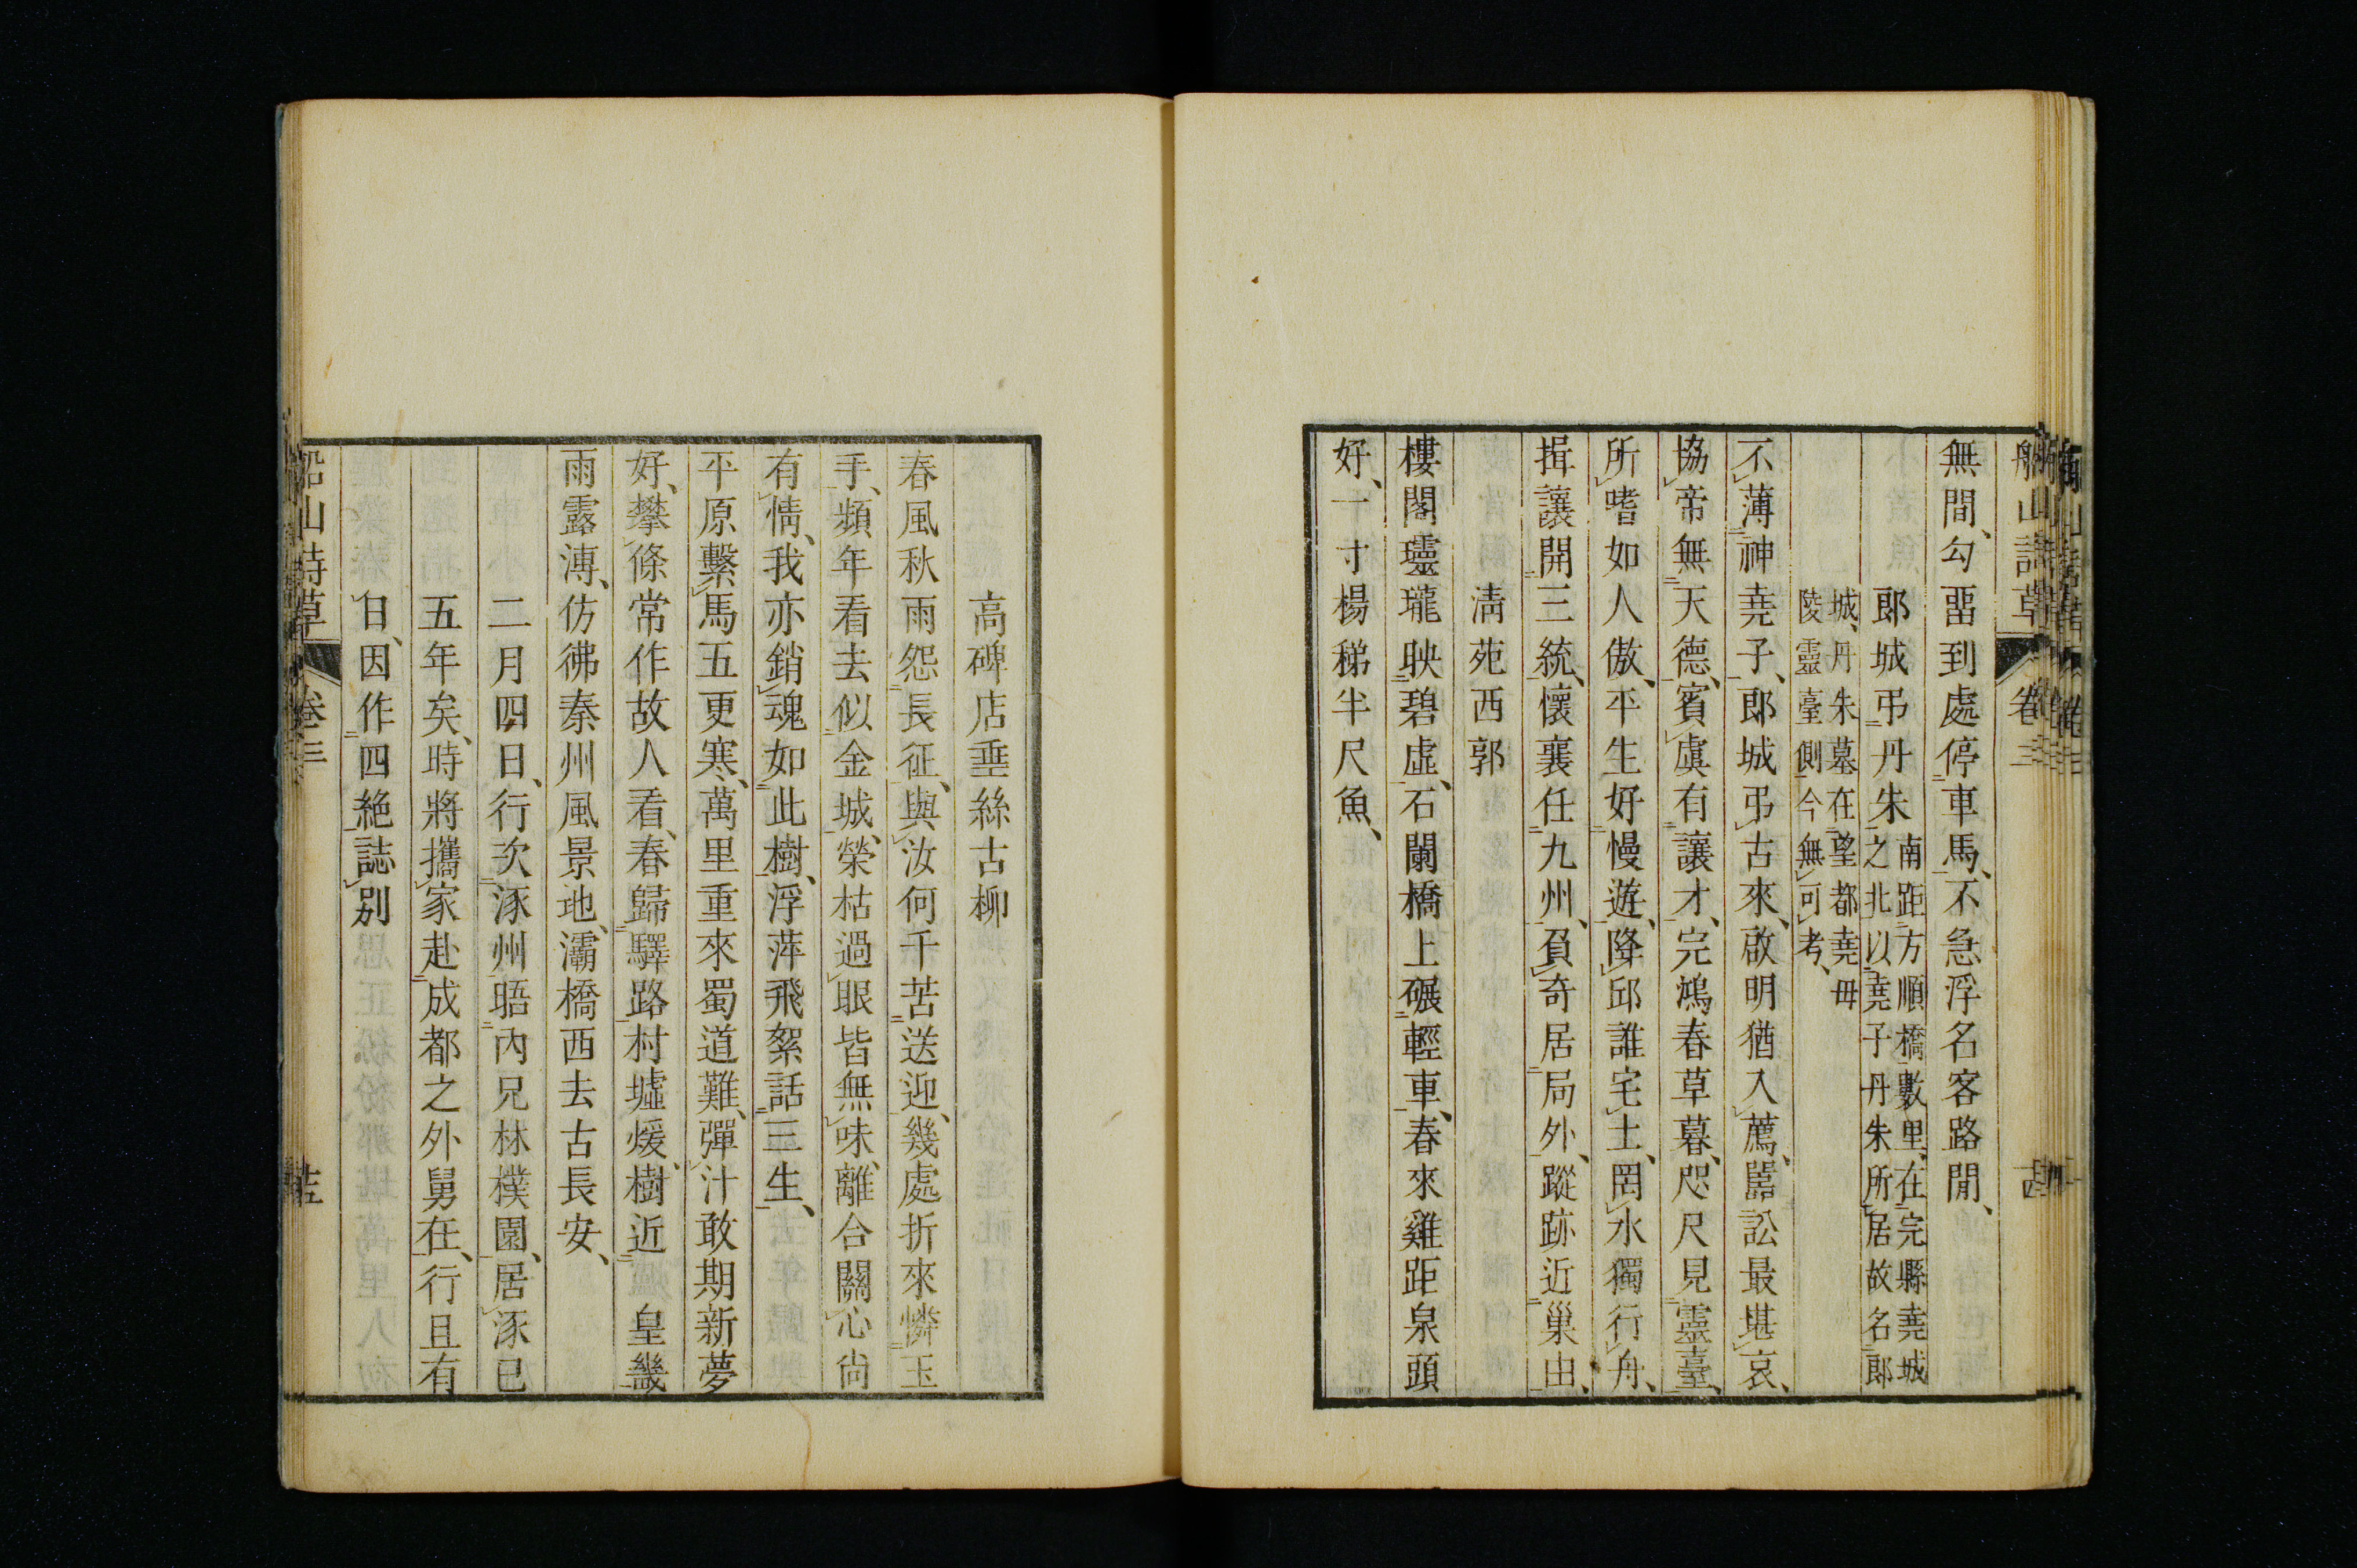 船山詩草 卷三 十四
無間、勾畱到處停車馬、不急浮名客路閒、
郎城弔丹朱
南距方順橋數里、在完縣堯城
之北以堯子丹朱所居故名郎
城、丹朱墓在望都堯母
陵靈臺側今無可考、
不薄神堯子、郎城弔古來、啟明猶入薦、嚚訟最堪哀、
協帝無天德、賓虞有讓才、完鴻春草暮、咫尺見靈臺、
所嗜如人傲、平生好慢遊、降邱誰宅土、罔水獨行舟、
揖讓開三統、懷襄任九州、負奇居局外、蹤跡近巢由、
淸苑西郭
樓閣瓏映碧虛、石闌橋上碾輕車、春來雞距泉頭
好、一寸楊稊半尺魚、
高碑店垂絲古柳
春風秋雨怨長征、與汝何千苦送迎、幾處折來憐玉
手、頻年看去似金城、榮枯過眼皆無味、離合關心尙
有情、我亦銷魂如此樹、浮萍飛絮話三生、
平原繫馬五更寒、萬里重來蜀道難、彈汁敢期新夢
好、攀條常作故人看、春歸驛路村墟煖、樹近 皇畿
雨露溥、仿彿秦州風景地、灞橋西去古長安、
二月四日、行次涿州晤內兄林樸園、居涿已
五年矣、時將攜家赴成都之外舅在、行且有
日、因作四絶誌別
船山詩草 卷三